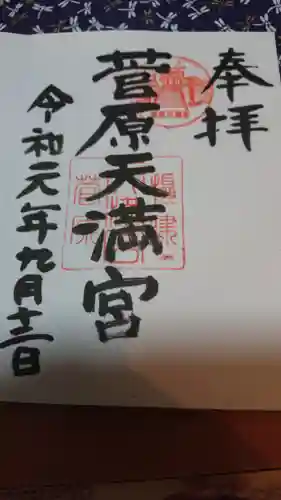 奉拝
菅原天満宮
令和元年九月十二日